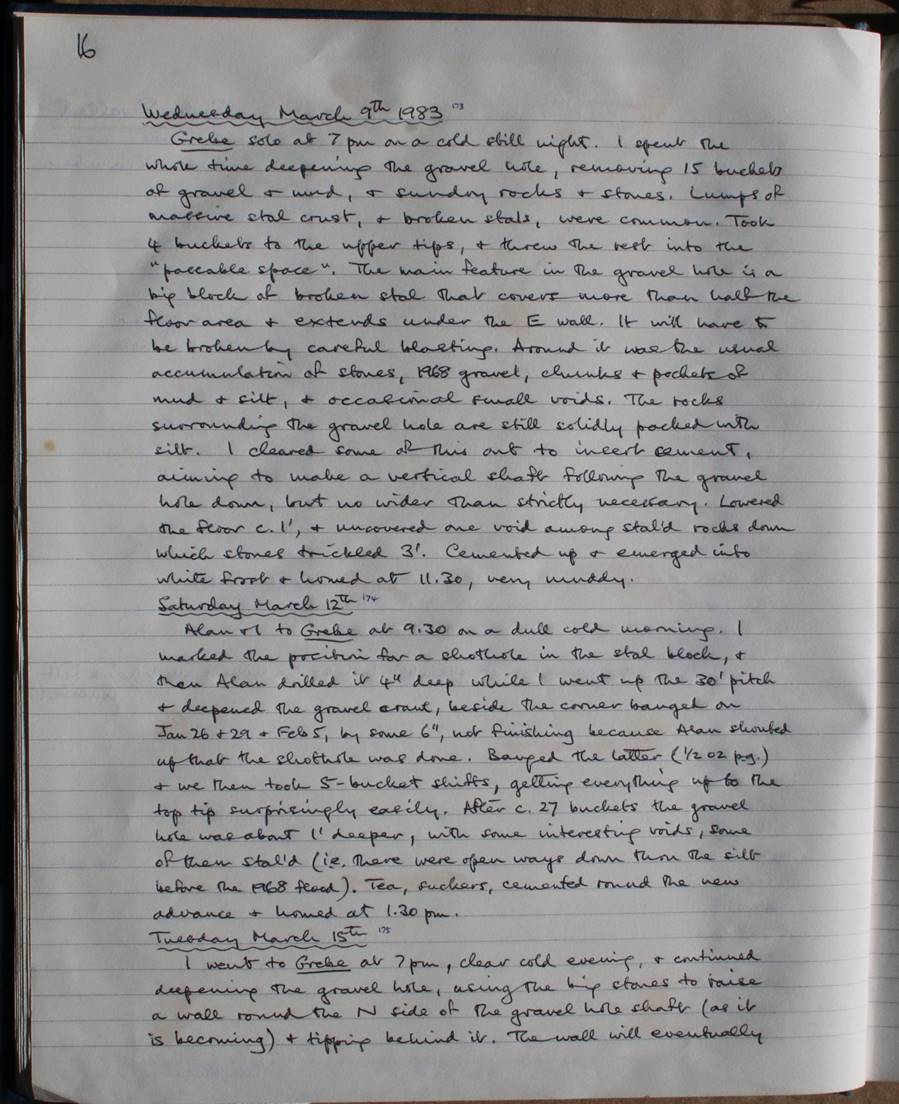 16
Wednesday March 9th 1983 173
Grebe solo at 7pm on a cold still night. I spent the
whole time deepening the gravel hole, removing 15 buckets
of gravel + mud, + sundry rocks + stones. Lumps of
massive stal crust, + broken stals, were common. Took
4 buckets to the upper tips, + threw the rest into the
"passable space". The main feature in the gravel hole is a
big block of broken stal that covers more than half the
floor area + extends under the E wall. It will have to
be broken by careful blasting. Around it was the usual
accumulation of stones, 1968 gravel, chunks + pockets of
mud + silt, + occasional small voids. The rocks
surrounding the gravel hole are still solidly packed with
silt. I cleared some of this out to insert cement,
aiming to make a vertical shaft following the gravel
hole down, but no wider than strictly necessary. Lowered
the floor c. 1', + uncovered one void among stal'd rocks down
which stones trickled 3'. Cemented up + emerged into
white frost + homed at 11.30, very muddy.
Saturday March 12th 174
Alan + I to Grebe at 9.30 on a dull cold morning. I
marked the position for a shothole in the stal block, +
then Alan drilled it 4" deep while I went up the 30' pitch
+ deepened the gravel crawl, beside the corner banged on
Jan 26 + 29 + Feb 5, by some 6", not finishing because Alan shouted
up that the shothole was done. Banged the latter (1/2 oz p.g.)
+ we then took 5-bucket shifts, getting everything up to the
top tip surprisingly easily. After c. 27 buckets the gravel
hole was about 1' deeper, with some interesting voids, some
of them stal'd (ie. there were open ways down thru the silt
before the 1968 flood). Tea, suckers, cemented round the new
advance + homed at 1.30 pm.
Tuesday March 15th 175
I went to Grebe at 7pm, clear cold evening, + continued
deepening the gravel hole, using the big stones to raise
a wall round the N side of the gravel hole shaft (as it
is becoming) + tipping behind it. The wall will eventually